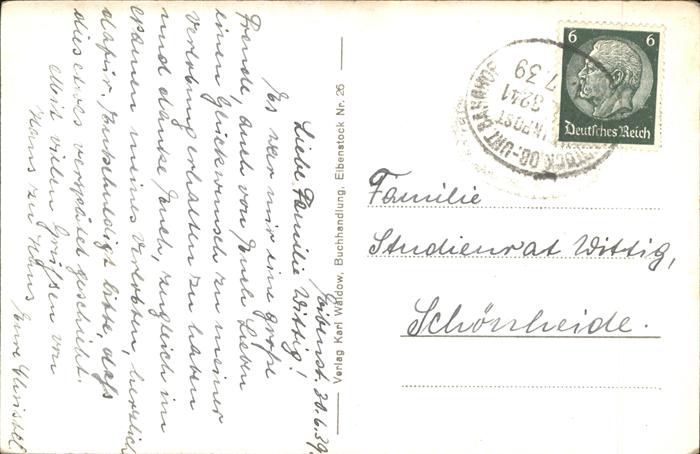 Eibenst. 30.6.39.
Liebe Familie Wittig!
Es war mir eine große
Freude, auch von Euch Lieben
einen Glückwunsch zu meiner
Verlobung erhalten zu haben
und danke Euch, zugleich im
Namen meines Verlobten, herzlich
dafür. Entschuldigt bitte, daß
dies etwas verspätet geschieht.
Mit vielen Grüßen von
Haus zu Haus Eure
Verlag Karl Waldow, Buchhandlung, Eibenstock Nr. 26
6 6
Deutsches Reich
OB.-UNT BAHNHOF
7.39
3241
Familie
Studienrat Wittig,
Schönheide.